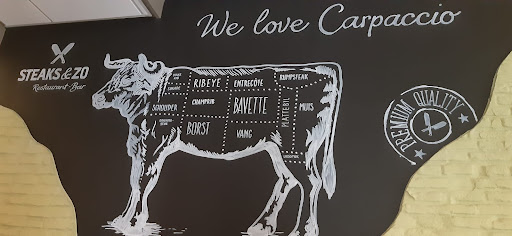 We love Carpaccio
STEAKS & ZO
Restaurant Bar
RIBEYE
ENTRECÔTE
RUMPSTEAK
SCHOUDER
CHAMPRIB
BAVETTE
PLATTEBIL
MUIS
BORST
VANG
PREMIUM QUALITY